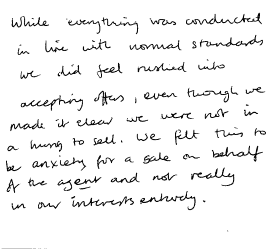 While everything was conducted
in line with normal standards
we did feel rushed into
accepting offers, even though we
made it clear we were not in
a hurry to sell. We felt this to
be anxiety for a sale on behalf
of the agent and not really
in our interests entirely.